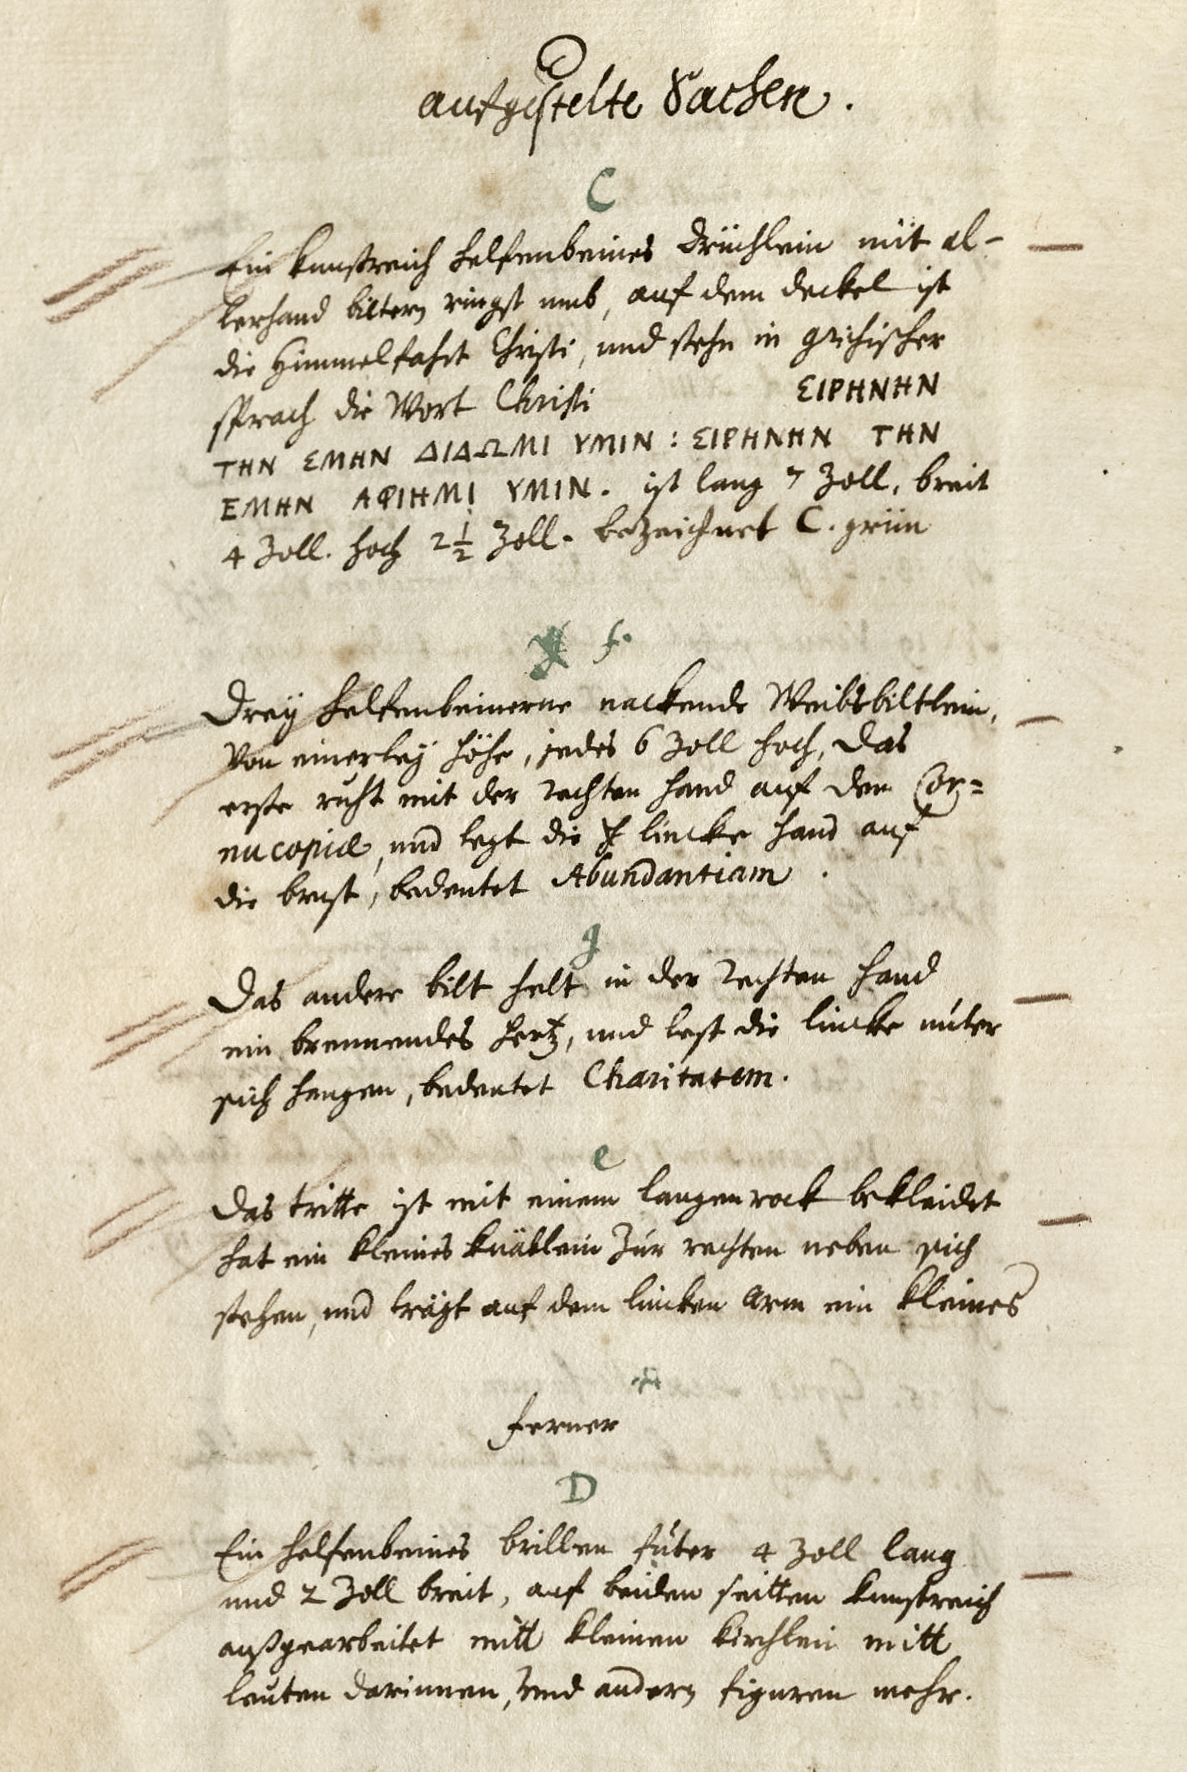 aufgestelte Sachen.
C
Ein kunstreich helfenbeines Drüchlein mit al-
lerhand biltern ringst umb, auf dem deckel ist
die Himmelfahrt Christi, und stehn in grichischer
sprach die Wort Christi ΕΙΡΗΝΗΝ
ΤΗΝ ΕΜΗΝ ΔΙΔΩΜΙ ΥΜΙΝ: ΕΙΡΗΝΗΝ ΤΗΝ
ΕΜΗΝ ΑΦΙΗΜΙ ΥΜΙΝ. ist lang 7 Zoll, breit
4 Zoll. hoch 2 1/2 Zoll. bezeichnet C. grün
f.
Dreÿ helfenbeinerne nackende Weibsbiltlein,
von einerleÿ höhe, jedes 6 Zoll hoch, Das
erste ruht mit der rechten hand auf den Cor=
nucopiæ, und legt die lincke hand auf
die brust, bedeutet Abundantiam.
g
Das andere bilt helt in der rechten hand
ein brennendes hertz, und lest die lincke unter
sich hangen, bedeutet Charitatem.
e
Das tritte ist mit einem langen rock bekleidet
hat ein kleines knäblein zur rechten neben sich
stehen, und trägt auf dem lincken arm ein kleines
ferner
D
Ein helfenbeines brillen futer 4 Zoll lang
und 2 Zoll breit, auf beiden seitten kunstreich
außgearbeitet mitt kleinen kirchlein mitt
leuten darinnen, und andern figuren mehr.